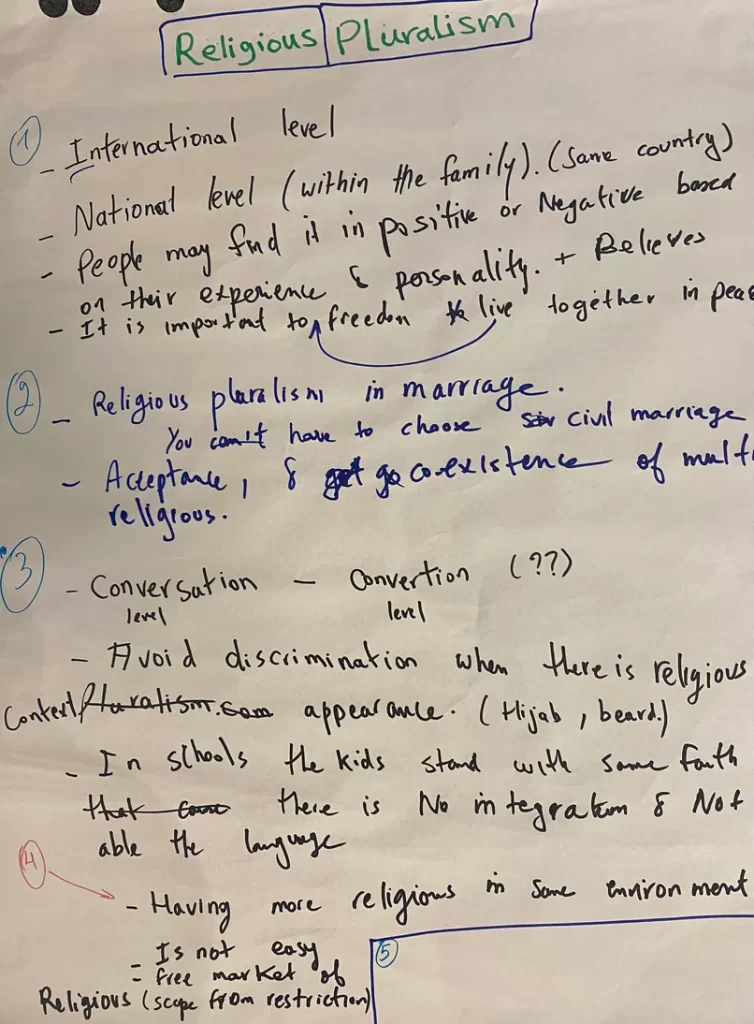 Religious Pluralism
1
- International level
- National level (within the family). (Same country)
- People may find it in positive or Negative based
on their experience & personality. + Believes
- It is important to freedon live together in peac
2
- Religious pluralism in marriage.
You can't have to choose civil marriage
- Acceptance, & co-existence of multi
religious.
3
- Conversation - Convertion (??)
level level
- Avoid discrimination when there is religious
Context Pluralism. appearance. (Hijab, beard.)
- In schools the kids stand with same faith
that there is No integration & Not
able the language
4
- Having more religious in same environment
- Is not easy
= free market of
Religious (scope from restriction)
5